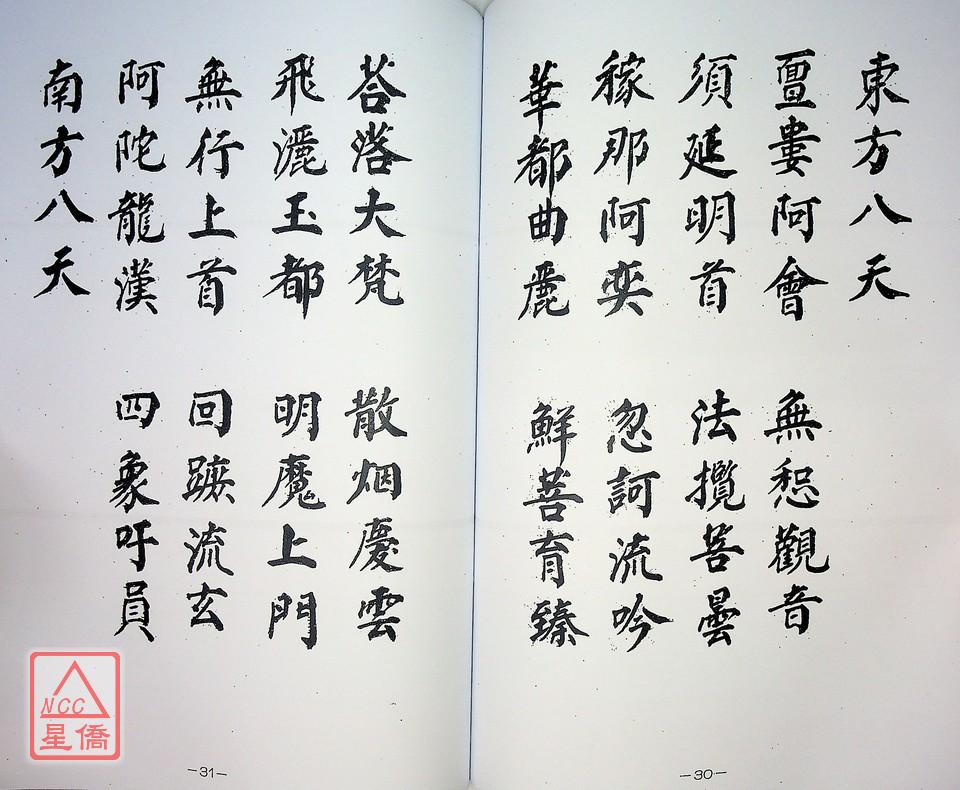 東方八天
亶婁阿會 無惒觀音
須延明首 法攬菩曇
稼那阿奕 忽訶流吟
華都曲麗 鮮菩育臻
荅落大梵 散烟慶雲
飛灑玉都 明魔上門
無行上首 回蹠流玄
阿陀龍漢 四象吁員
南方八天
—30—
—31—
NCC
星僑